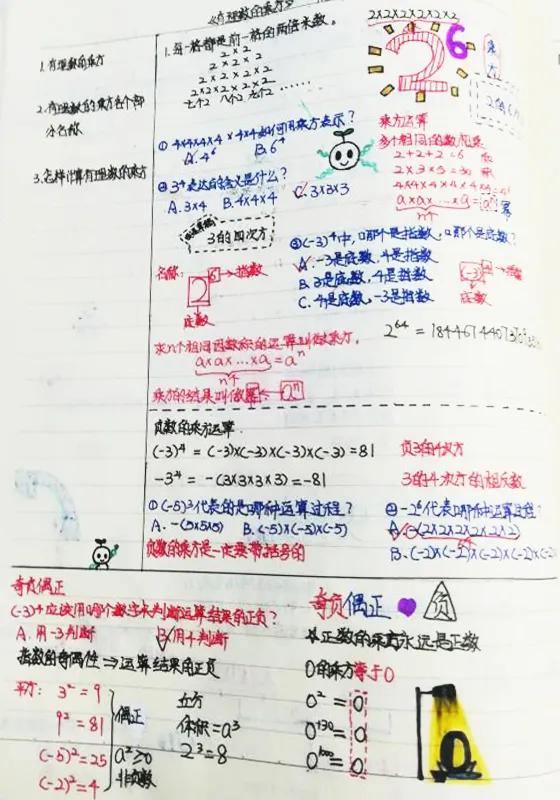 《有理数的乘方》
1.有理数的乘方
2.有理数的乘方各个部
分名称
3.怎样计算有理数的乘方
1.每一格都是前一格的两倍米数。
2×2
2×2×2
2×2×2×2
2×2×2×2×2 ……
七个2 八个2 九个2 ……
2×2×2×2×2×2
2⁶
乘方
①4×4×4×4×4×4如何用乘方表示?
A.4⁶ B.6⁴
②3⁴表达的含义是什么?
A.3×4 B.4×4×4 C.3×3×3
3的四次方
乘方运算
多个相同的数相乘
2+2+2=6
2×3×5=30
4×4×4×4×4×4=4⁶
a×a×…×a=aⁿ 幂
n个
③(-3)⁴中,哪个是指数,哪个是底数?
A.-3是底数,4是指数
B.3是底数,4是指数
C.4是底数,-3是指数
名称:
2⁶→指数
底数
(-3)⁴→指数
底数
求n个相同因数积的运算叫做乘方,
a×a×…×a=aⁿ
n个
乘方的结果叫做幂 aⁿ
2⁶⁴=18446744073709
负数的乘方运算.
(-3)⁴=(-3)×(-3)×(-3)×(-3)=81 负3的4次方
-3⁴=-(3×3×3×3)=-81 3的4次方的相反数
①(-5)³代表的是哪种运算过程?
A.-(5×5×5) B.(-5)×(-5)×(-5)
负数的乘方是一定要带括号的
②-2⁶代表哪种运算过程?
A.-(2×2×2×2×2×2)
B.(-2)×(-2)×(-2)×(-2)×(-2)
奇负偶正
(-3)⁴应该用哪个数字来判断运算结果的正负?
A.用-3判断 B.用4判断
指数的奇偶性⇒运算结果的正负
平方: 3²=9
9²=81
(-5)²=25
(-2)²=4
偶正
a²≥0
非负数
立方
体积=a³
2³=8
奇负偶正 负
正数的乘方永远是正数
0的乘方等于0
0²=0
0¹³⁰=0
0¹⁰⁰=0
0